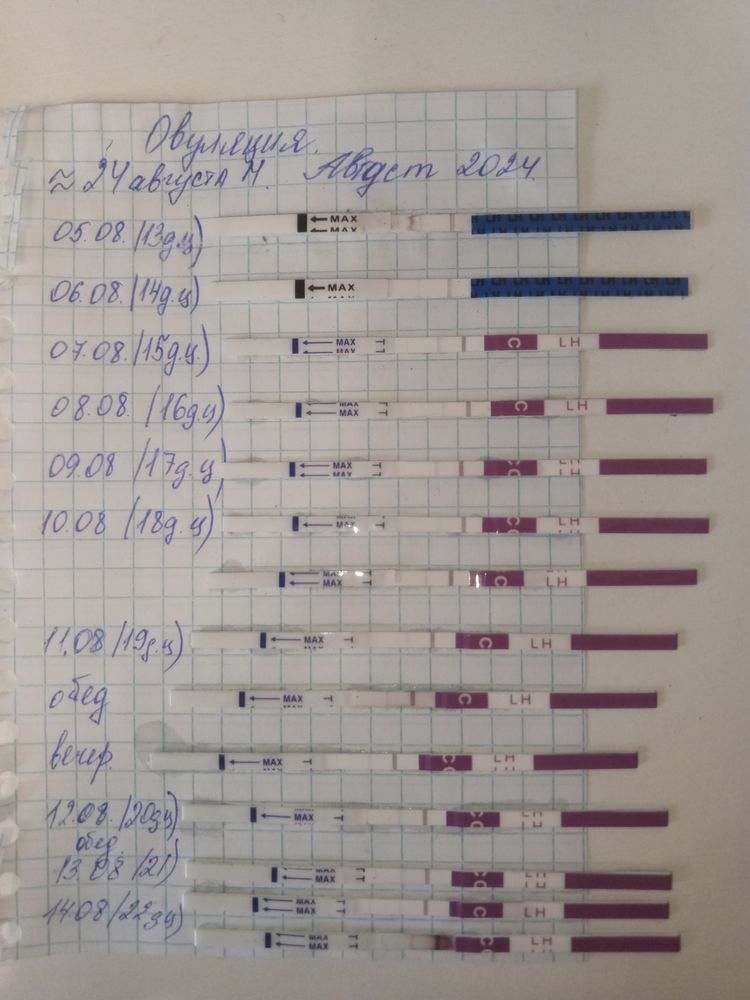 Овуляция.
≈ 24 августа М. Август 2024.
05.08. (13д.ц)
← MAX
← MA
06.08. (14д.ц)
← MAX
07.08. (15д.ц.)
← MAX T C LH
← MAX
08.08. (16д.ц)
← MAX
← MAX T C LH
09.08 (17д.ц)
← MAX T C LH
← MAX
10.08 (18д.ц)
← MAX T C LH
← MAX T C LH
11.08 (19д.ц)
← MAX T C LH
обед
← MAX T C LH
вечер.
← MAX T C LH
12.08. (20дц)
← MAX T C LH
обед.
13.08 (21)
← MAX T C LH
← MAX
14.08 (22дц)
← MAX T C LH
← MAX
← MAX T C LH
← MAX